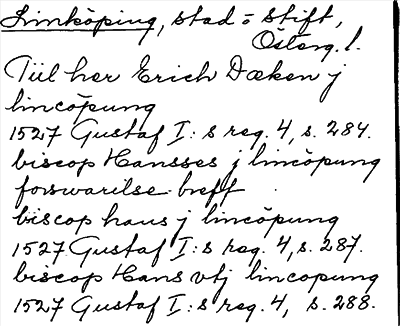 Linköping, stad o stift,
Österg. l.
Till her Erich Dæken j
lincöpung
1527 Gustaf I:s reg. 4, s. 284.
biscop Hansses j lincöpung
forswarilse breff
biscop hans j lincöpung
1527 Gustaf I:s reg. 4, s. 287.
biscop Hans vtj lincopung
1527 Gustaf I:s reg. 4, s. 288.